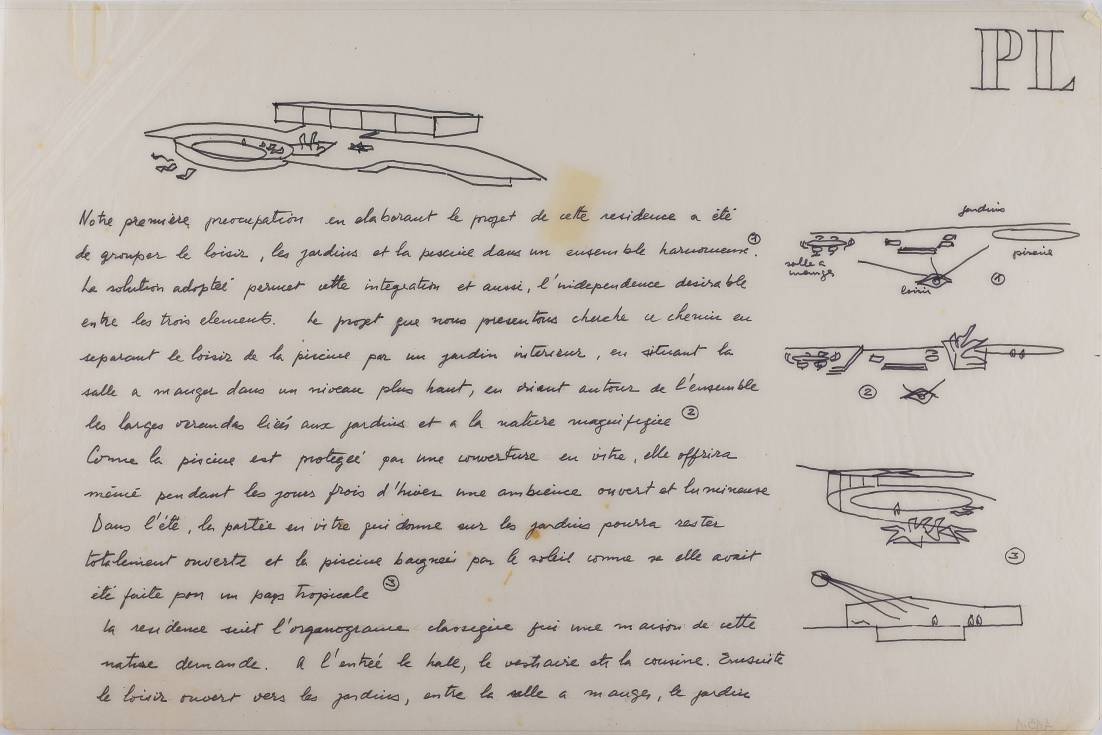 PL
Notre première, preocupation en elaborant le projet de cette residence a été
de grouper le loisir, les jardins et la piscine dans un ensemble harmonieuse. ①
La solution adopteé permet cette integration et aussi, l'independence desirable
entre les trois elements. Le projet que nous presentons cherche ce chemin en
separant le loisir de la piscine par un jardin interieur, en situant la
salle a manger dans un niveau plus haut, en criant autour de l'ensemble
les larges verandas liés aux jardins et a la nature magnifique ②
Comme la piscine est protegeé par une couverture en vitre, elle offrira
mémé pendant les jours frois d'hiver une ambience ouvert et lumineuse
Dans l'été, la partie en vitre qui donne sur les jardins pourra rester
totalement ouverte et la piscine baigneé par le soleil comme se elle avait
été faite pour un pays tropicale ③
La residence suit l'organograme classique qui une maison de cette
nature demande. A l'entreé le hall, le vestiaire et la cousine. Ensuite
le loisir ouvert vers les jardins, entre la salle a manger, le jardin
jardins
salle a
manger
piscine
loisir
①
②
③